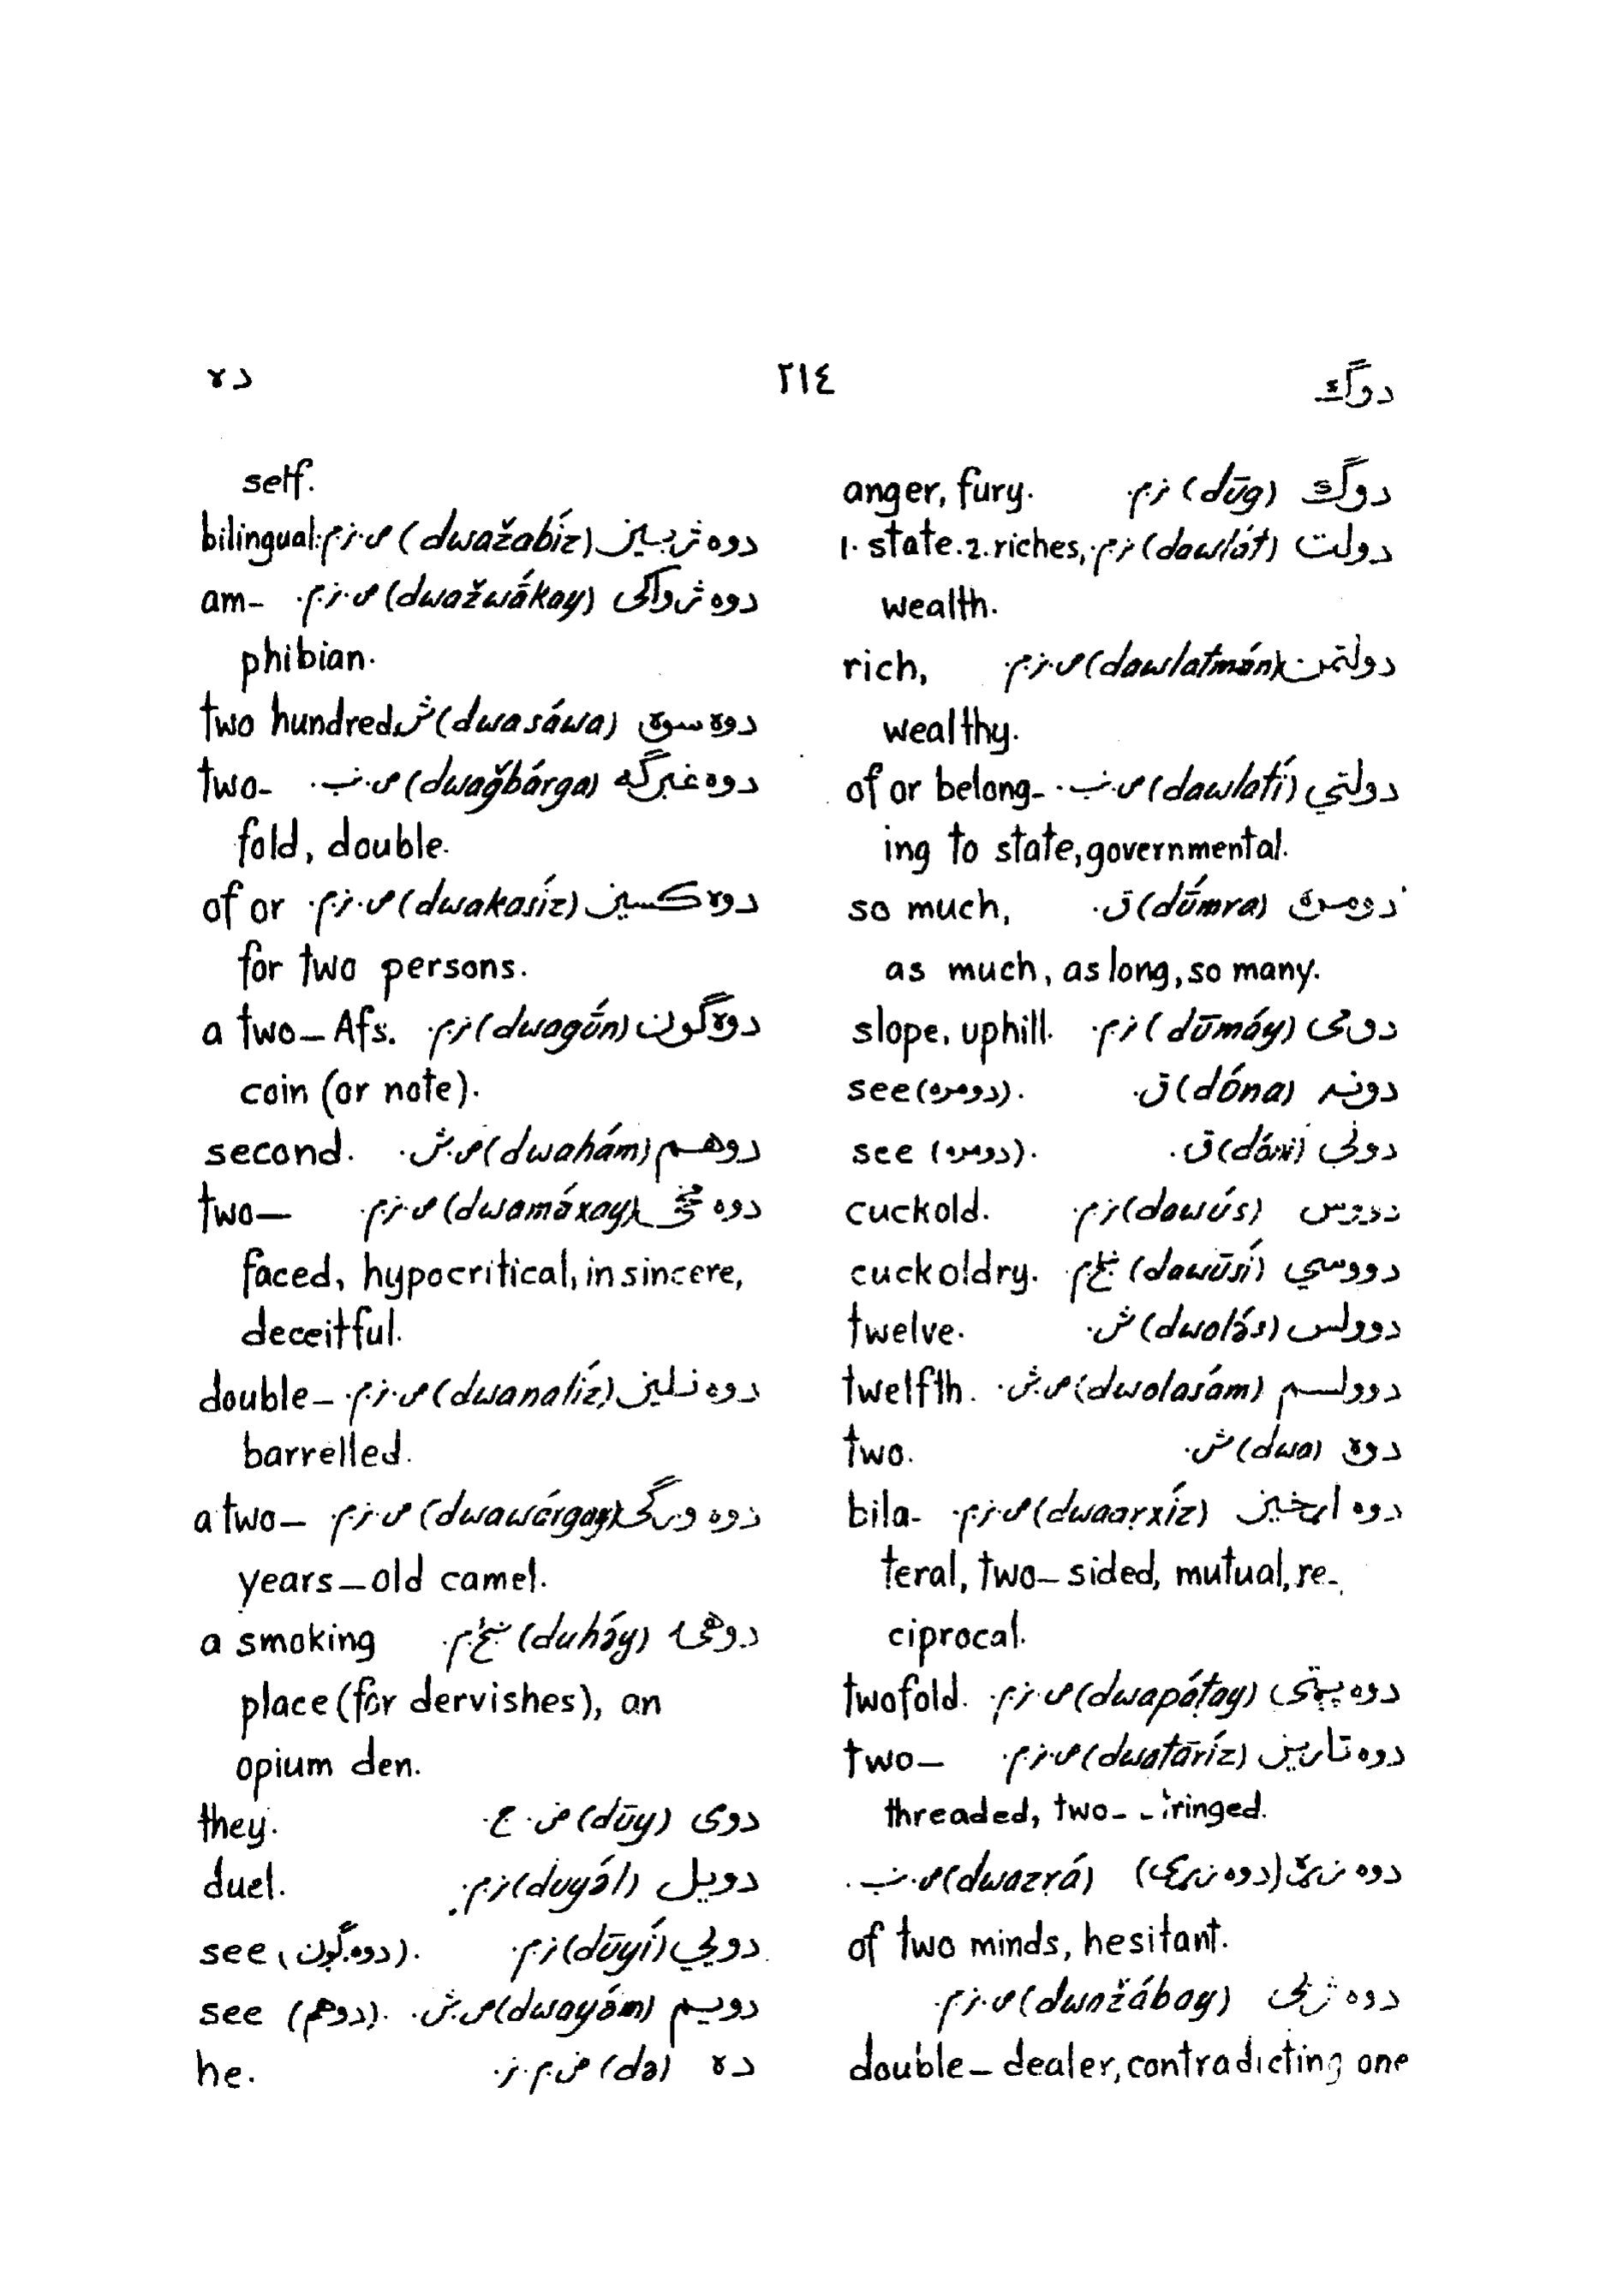 دوګ ٢١٤ ده
دوګ (dūg) ن‍.م. anger, fury.
دولت (dawlát) ن‍.م. 1. state. 2. riches,
wealth.
دولتمن (dawlatmán) ص.ن‍.م. rich,
wealthy.
دولتي (dawlatí) ص.ن‍ب. of or belong-
ing to state, governmental.
دومره (dū́mra) ق. so much,
as much, as long, so many.
دومی (dūmáy) ن‍.م. slope, uphill.
دونه (dóna) ق. see (دومره).
دوني ق. see (دومره).
دووس (dawús) ن‍.م. cuckold.
دووسي (dawūsí) cuckoldry.
دوولس (dwolə́s) ش. twelve.
دوولسم (dwolasám) ص.ش. twelfth.
دوه (dwa) ش. two.
دوه اړخیز (dwaaṛxíz) ص.ن‍.م. bila-
teral, two-sided, mutual, re-
ciprocal.
دوه پټی (dwapáṭay) ص.ن‍.م. twofold.
دوه تاریز (dwatāríz) ص.ن‍.م. two-
threaded, two-
دوه زړه (دوه زړی) (dwazṛá) ص.ن‍ب.
of two minds, hesitant.
دوه ژبی (dwažábay) ص.ن‍.م.
double-dealer, contradicting one
self.
دوه ژبیز (dwažabíz) ص.ن‍.م. bilingual.
دوه ژواکی (dwažwā́kay) ص.ن‍.م. am-
phibian.
دوه سوه (dwasáwa) ش. two hundred.
دوه غبرګه (dwağbárga) ص.ن‍ب. two-
fold, double.
دوه کسیز (dwakasíz) ص.ن‍.م. of or
for two persons.
دوه ګون (dwagū́n) ن‍.م. a two-Afs.
coin (or note).
دوهم (dwahám) ص.ش. second.
دوه مخی (dwamáxay) ص.ن‍.م. two-
faced, hypocritical, insincere,
deceitful.
دوه نلیز (dwanalíz) ص.ن‍.م. double-
barrelled.
دوه ورګی ص.ن‍.م. a two-
years-old camel.
دوهۍ (duhə́y) a smoking
place (for dervishes), an
opium den.
دوی (dūy) ض.ج. they.
دویل (duyə́l) ن‍.م. duel.
دویي (dūyí) ن‍.م. see (دوه ګون).
دویم (dwayə́m) ص.ش. see (دوهم).
ده (də) ض.م.ز. he.